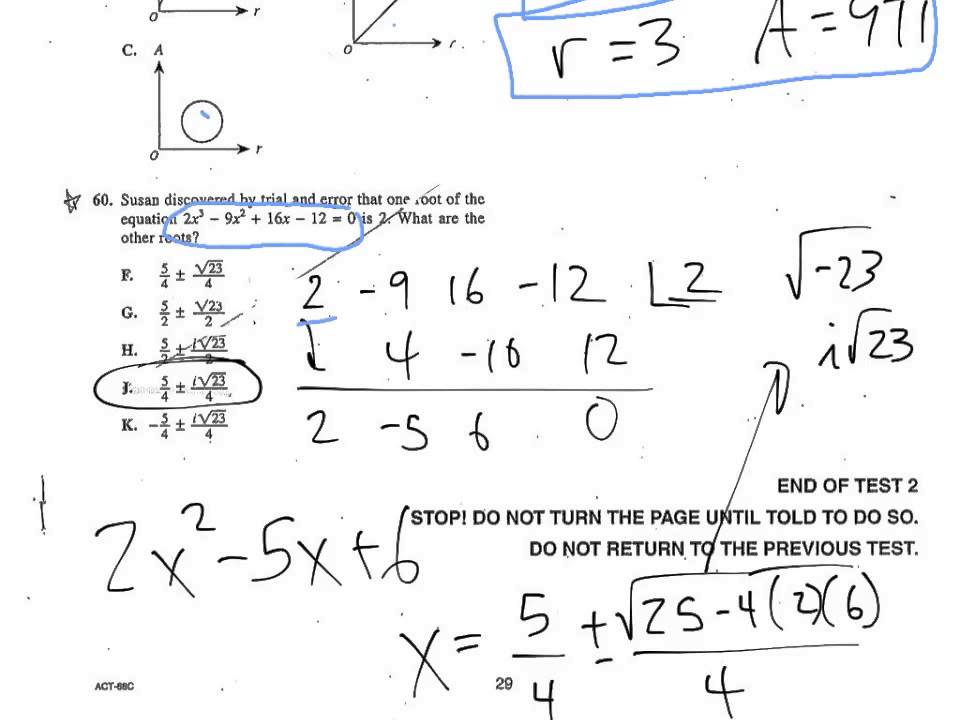 O r
O r
C. A
O r
r = 3 A = 9π
60. Susan discovered by trial and error that one root of the
equation 2x³ − 9x² + 16x − 12 = 0 is 2. What are the
other roots?
F. 5/4 ± √23/4
G. 5/2 ± √23/2
H. 5/2 ± i√23/2
J. 5/4 ± i√23/4
K. −5/4 ± i√23/4
2 −9 16 −12 2
↓ 4 −10 12
2 −5 6 0
√−23
i√23
2x² − 5x + 6
x = 5/4 ± √25−4(2)(6)/4
END OF TEST 2
STOP! DO NOT TURN THE PAGE UNTIL TOLD TO DO SO.
DO NOT RETURN TO THE PREVIOUS TEST.
ACT-66C
29